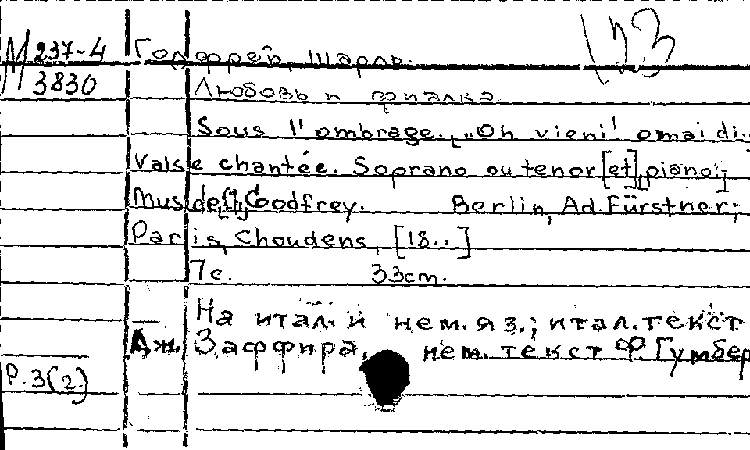 123
М 237-4 Годфрей, Шарль.
3830 Любовь и фиалка
Sous l'ombrage. „Oh vieni! omai di
Valse chantée. Soprano ou tenor [et] piano;
Mus de [Ch] Godfrey. Berlin, Ad. Fürstner;
Paris, Choudens, [18..]
7 с. 33cm.
На итал. и нем. яз.; итал. текст
Дж. Заффира, нем. текст Ф. Гумбер
Р. 3(2)